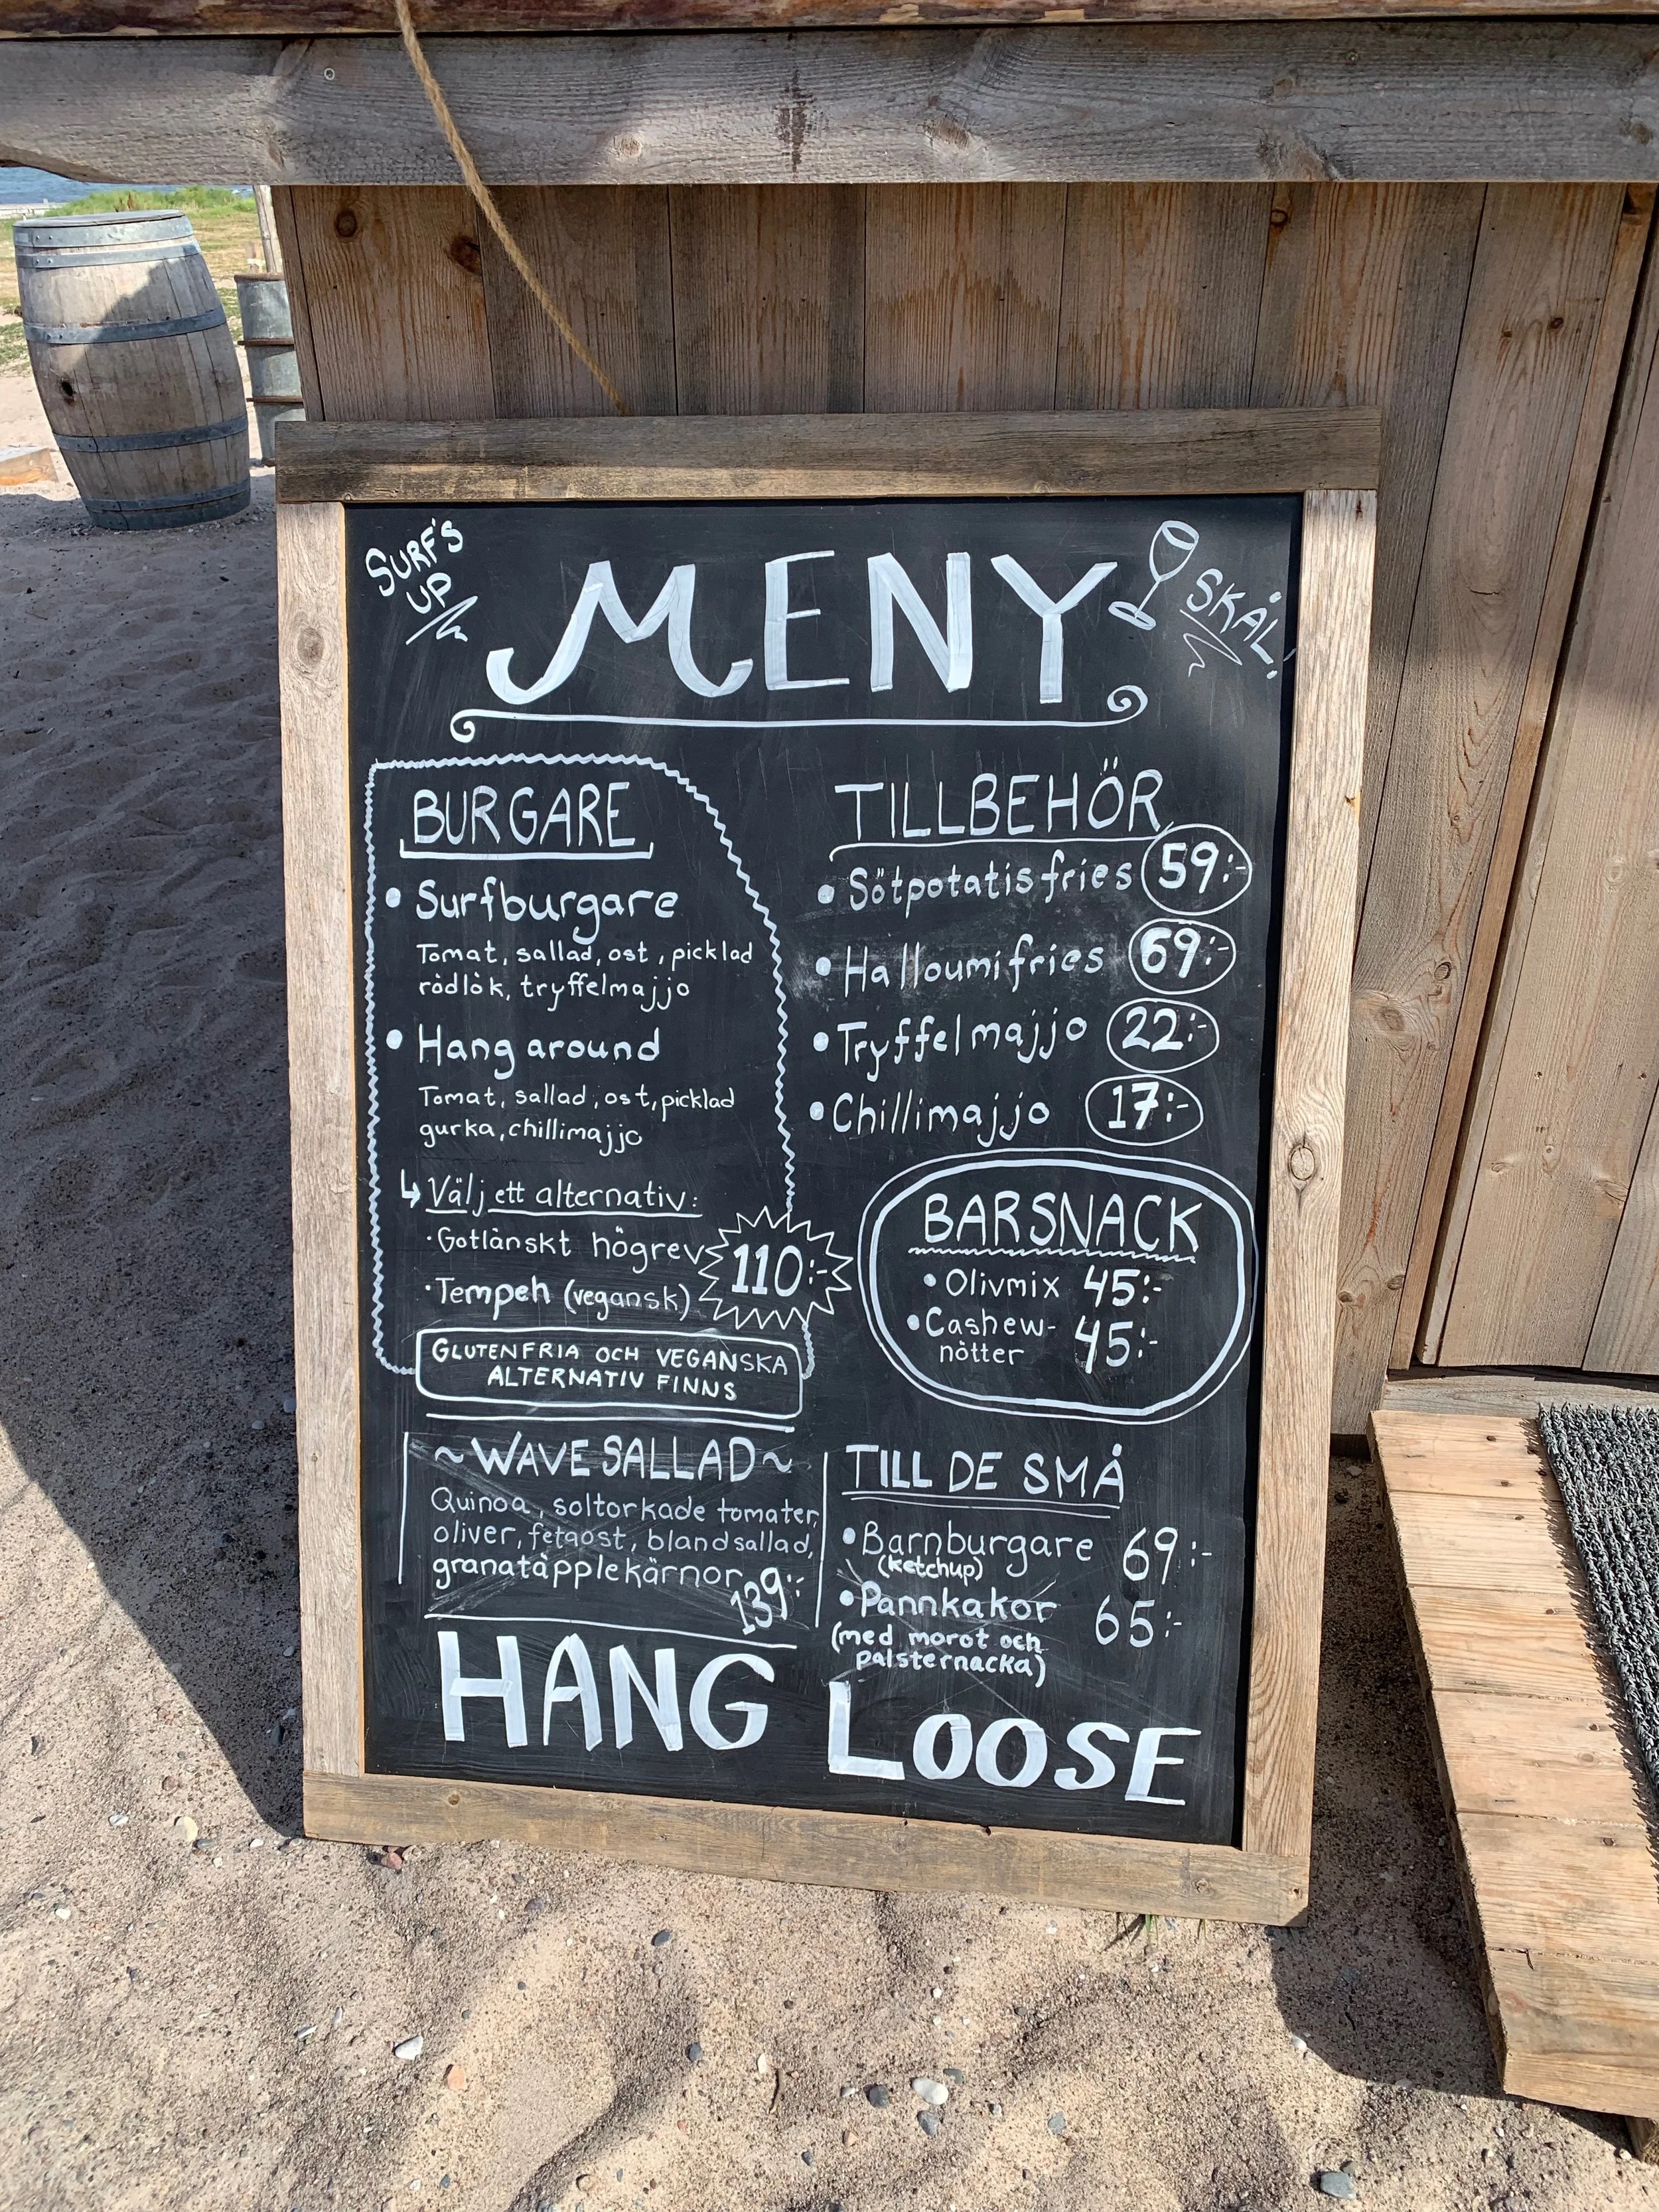 SURF'S
UP
MENY
SKÅL!
BURGARE
• Surfburgare
Tomat, sallad, ost, picklad
rödlök, tryffelmajjo
• Hang around
Tomat, sallad, ost, picklad
gurka, chillimajjo
↳ Välj ett alternativ:
· Gotlänskt högrev
· Tempeh (vegansk)
110:-
GLUTENFRIA OCH VEGANSKA
ALTERNATIV FINNS
TILLBEHÖR
• Sötpotatisfries 59:-
• Halloumifries 69:-
• Tryffelmajjo 22:-
• Chillimajjo 17:-
BARSNACK
• Olivmix 45:-
• Cashew- 45:-
nötter
~WAVE SALLAD~
Quinoa, soltorkade tomater,
oliver, fetaost, blandsallad,
granatäpplekärnor 139:-
TILL DE SMÅ
• Barnburgare 69:-
(ketchup)
• Pannkakor 65:-
(med morot och
palsternacka)
HANG LOOSE